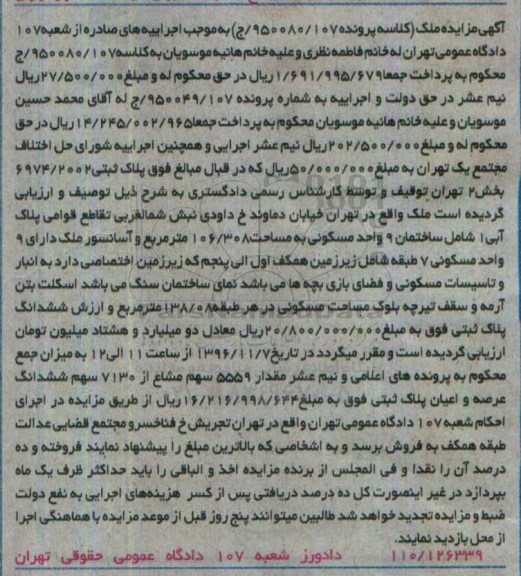 آگهی مزایده ملک (کلاسه پرونده ۹۵۰۰۸۰/۱۰۷/ج) به موجب اجراییه های صادره از شعبه ۱۰۷
دادگاه عمومی تهران له خانم فاطمه نظری و علیه خانم هانیه موسویان به کلاسه ۹۵۰۰۸۰/۱۰۷/ج
محکوم به پرداخت جمعا ۱/۶۹۱/۹۹۵/۶۷۹ ریال در حق محکوم له و مبلغ ۲۷/۵۰۰/۰۰۰ ریال
نیم عشر در حق دولت و اجراییه به شماره پرونده ۹۵۰۰۴۹/۱۰۷/ج له آقای محمد حسین
موسویان و علیه خانم هانیه موسویان محکوم به پرداخت جمعا ۱۴/۲۴۵/۰۰۲/۹۶۵ ریال در حق
محکوم له و مبلغ ۲۰۲/۵۰۰/۰۰۰ ریال نیم عشر اجرایی و همچنین اجراییه شورای حل اختلاف
مجتمع یک تهران به مبلغ ۵۰/۰۰۰/۰۰۰ ریال که در قبال مبالغ فوق پلاک ثبتی ۶۹۷۴/۲۰۰۲
بخش ۲ تهران توقیف و توسط کارشناس رسمی دادگستری به شرح ذیل توصیف و ارزیابی
گردیده است ملک واقع در تهران خیابان دماوند خ داودی نبش شمالغربی تقاطع قوامی پلاک
آبی ۱ شامل ساختمان ۹ واحد مسکونی به مساحت ۱۰۶/۳۰۸ مترمربع و آسانسور ملک دارای ۹
واحد مسکونی ۷ طبقه شامل زیرزمین همکف اول الی پنجم که زیرزمین اختصاصی دارد به انبار
و تاسیسات مسکونی و فضای بازی بچه ها می باشد نمای ساختمان سنگ می باشد اسکلت بتن
آرمه و سقف تیرچه بلوک مساحت مسکونی در هر طبقه ۱۳۸/۰۸ مترمربع و ارزش ششدانگ
پلاک ثبتی فوق به مبلغ ۲۰/۸۰۰/۰۰۰/۰۰۰ ریال معادل دو میلیارد و هشتاد میلیون تومان
ارزیابی گردیده است و مقرر میگردد در تاریخ ۱۳۹۶/۱۱/۷ از ساعت ۱۱ الی ۱۲ به میزان جمع
محکوم به پرونده های اعلامی و نیم عشر مقدار ۵۵۵۹ سهم مشاع از ۷۱۳۰ سهم ششدانگ
عرصه و اعیان پلاک ثبتی فوق به مبلغ ۱۶/۲۱۶/۹۹۸/۶۴۴ ریال از طریق مزایده در اجرای
احکام شعبه ۱۰۷ دادگاه عمومی تهران واقع در تهران تجریش خ فناخسرو مجتمع قضایی عدالت
طبقه همکف به فروش برسد و به اشخاصی که بالاترین مبلغ را پیشنهاد نمایند فروخته و ده
درصد آن را نقدا و فی المجلس از برنده مزایده اخذ و الباقی را باید حداکثر ظرف یک ماه
بپردازد در غیر اینصورت کل ده درصد دریافتی پس از کسر هزینه های اجرایی به نفع دولت
ضبط و مزایده تجدید خواهد شد طالبین میتوانند پنج روز قبل از موعد مزایده با هماهنگی اجرا
از محل بازدید نمایند.
۱۱۰/۱۲۶۳۳۹ دادورز شعبه ۱۰۷ دادگاه عمومی حقوقی تهران